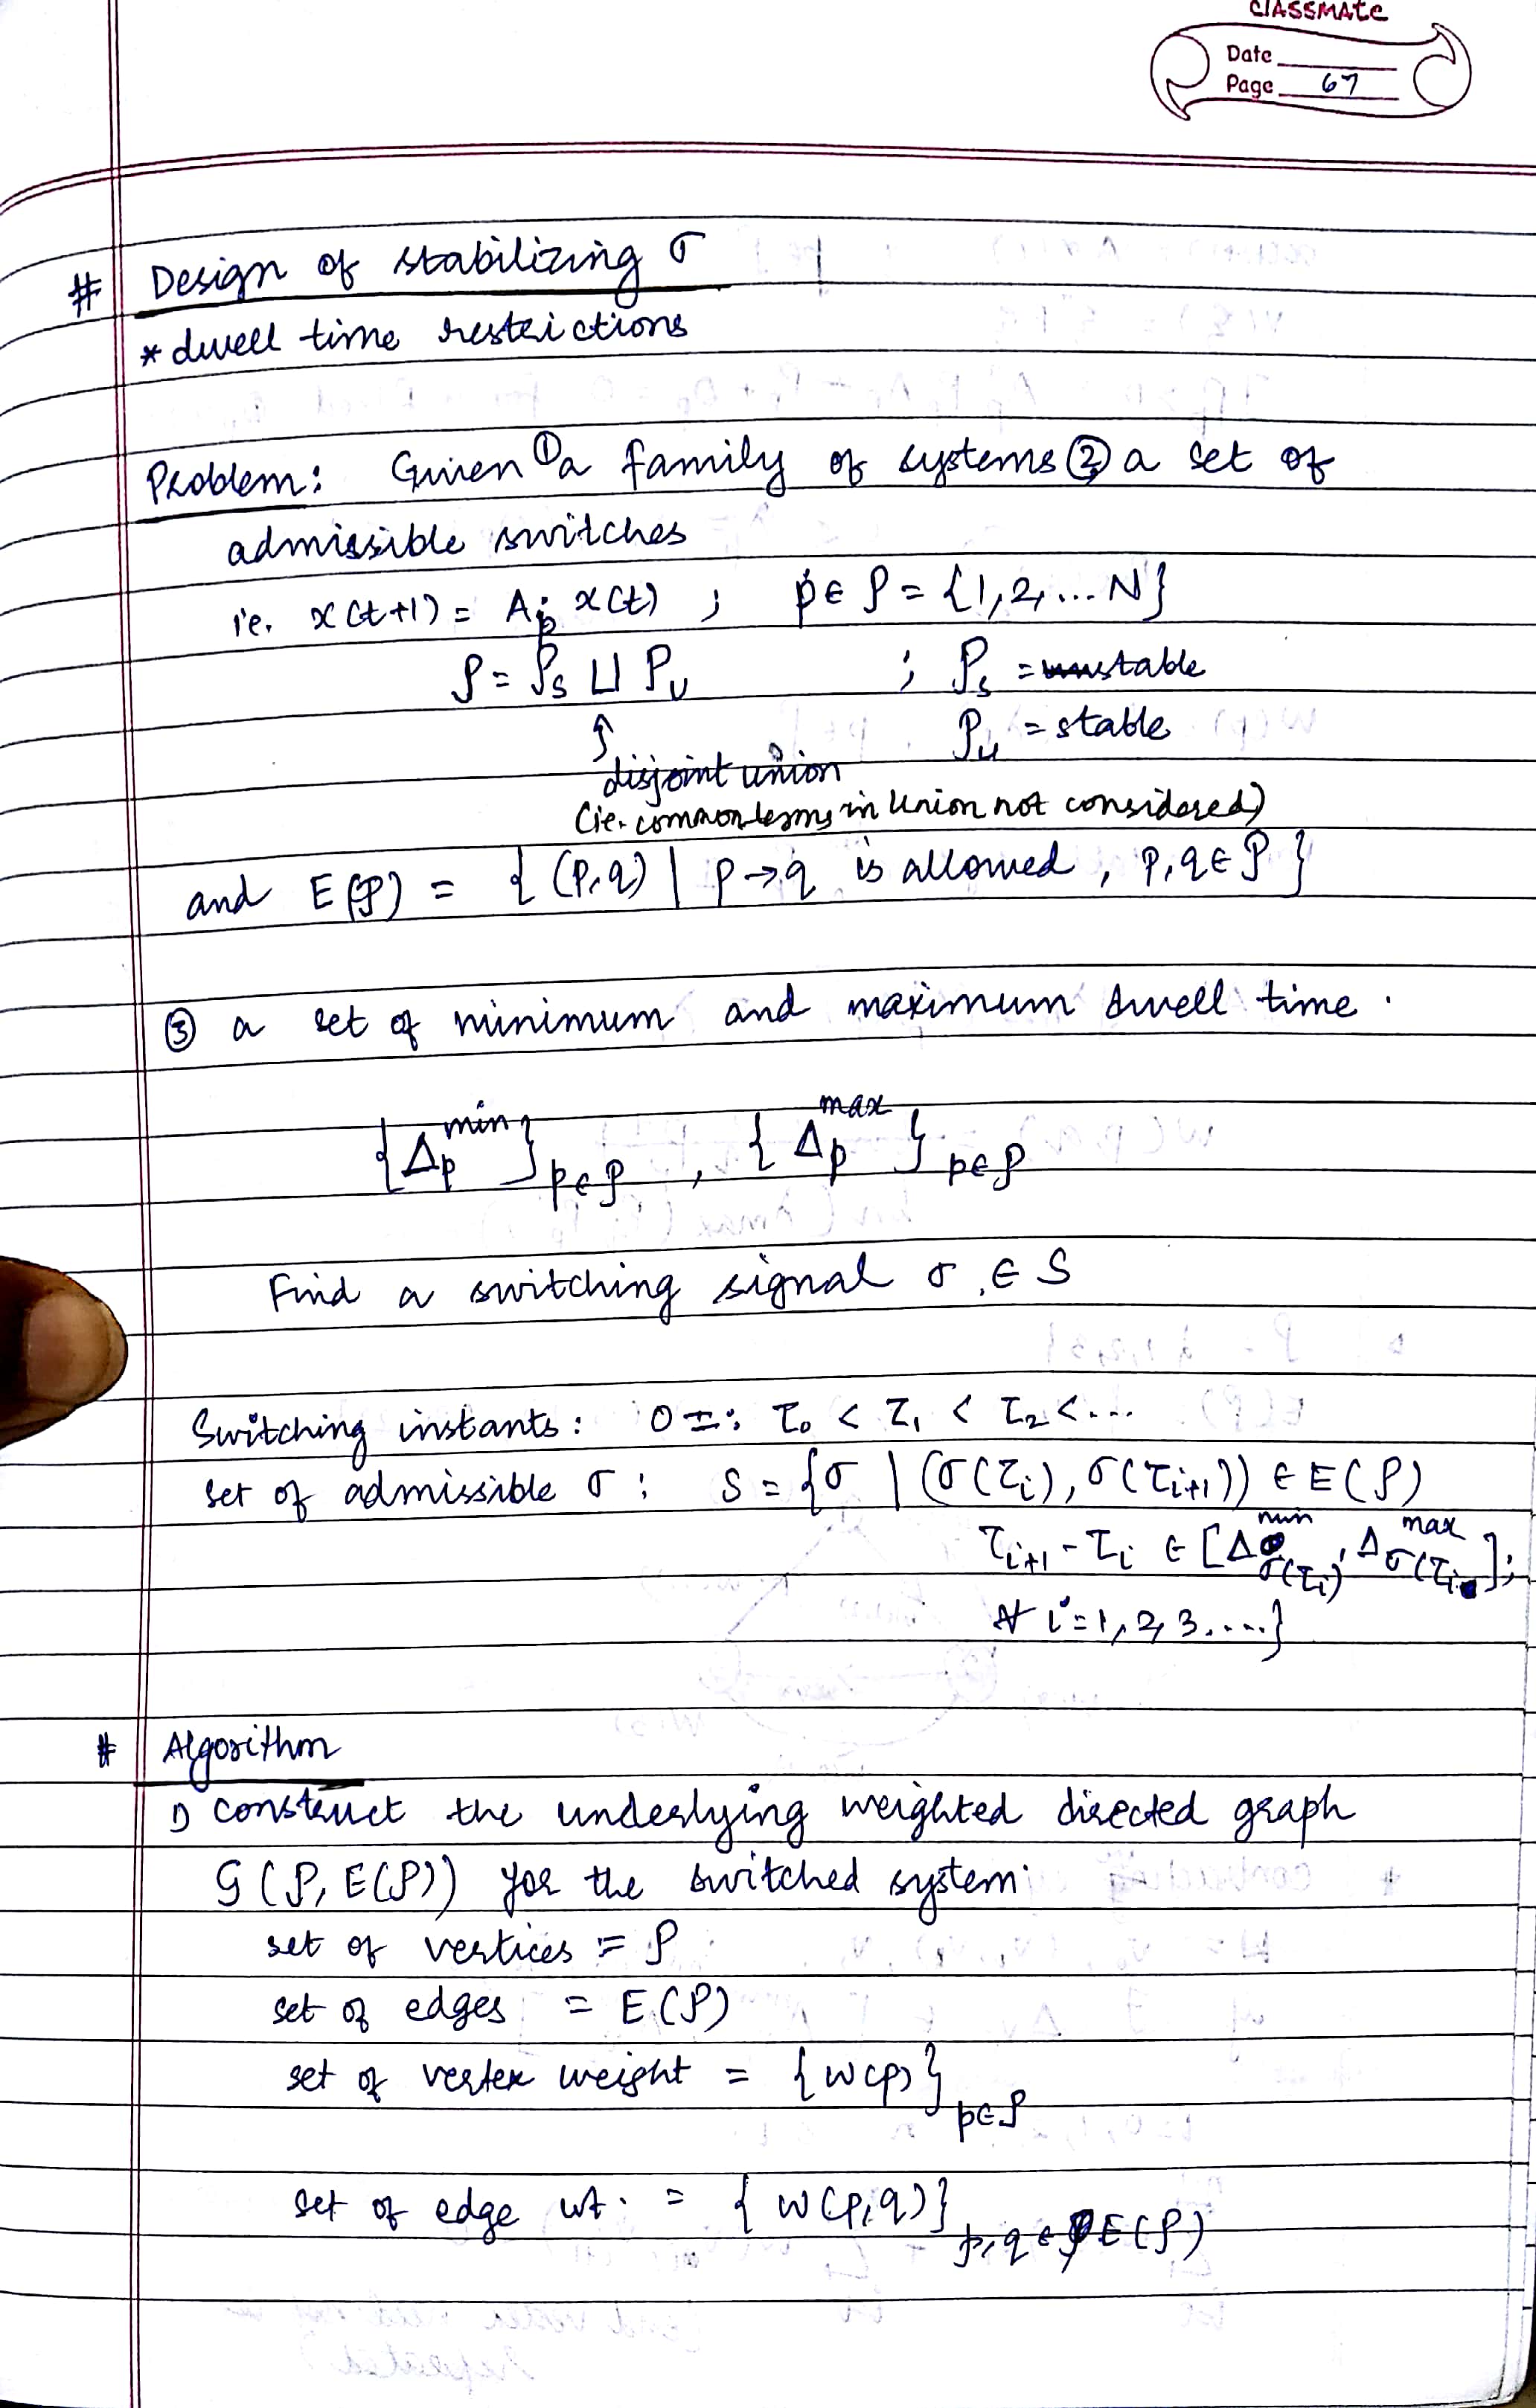 classmate
Date
Page 67
# Design of stabilizing σ
* dwell time restrictions
Problem: Given ① a family of systems ② a set of
admissible switches
i.e. x(t+1) = A_p x(t) ; p ∈ P = {1,2,...N}
P = P_S ⊔ P_U ; P_S = stable
↑ P_u = stable
disjoint union
(ie. common terms in Union not considered)
and E(P) = { (p,q) | p → q is allowed, p,q ∈ P }
③ a set of minimum and maximum dwell time.
{Δ_p^min}_{p∈P} , {Δ_p^max}_{p∈P}
Find a switching signal σ ∈ S
Switching instants: 0 =: τ_0 < τ_1 < τ_2 < ...
set of admissible σ : S = {σ | (σ(τ_i), σ(τ_{i+1})) ∈ E(P)
τ_{i+1} - τ_i ∈ [Δ^min_{σ(τ_i)}, Δ^max_{σ(τ_i)}];
∀ i = 1,2,3....}
# Algorithm
1) construct the underlying weighted directed graph
G(P, E(P)) for the switched system
set of vertices = P
set of edges = E(P)
set of vertex weight = {w(p)}_{p∈P}
set of edge wt. = {w(p,q)}_{p,q ∈ E(P)}